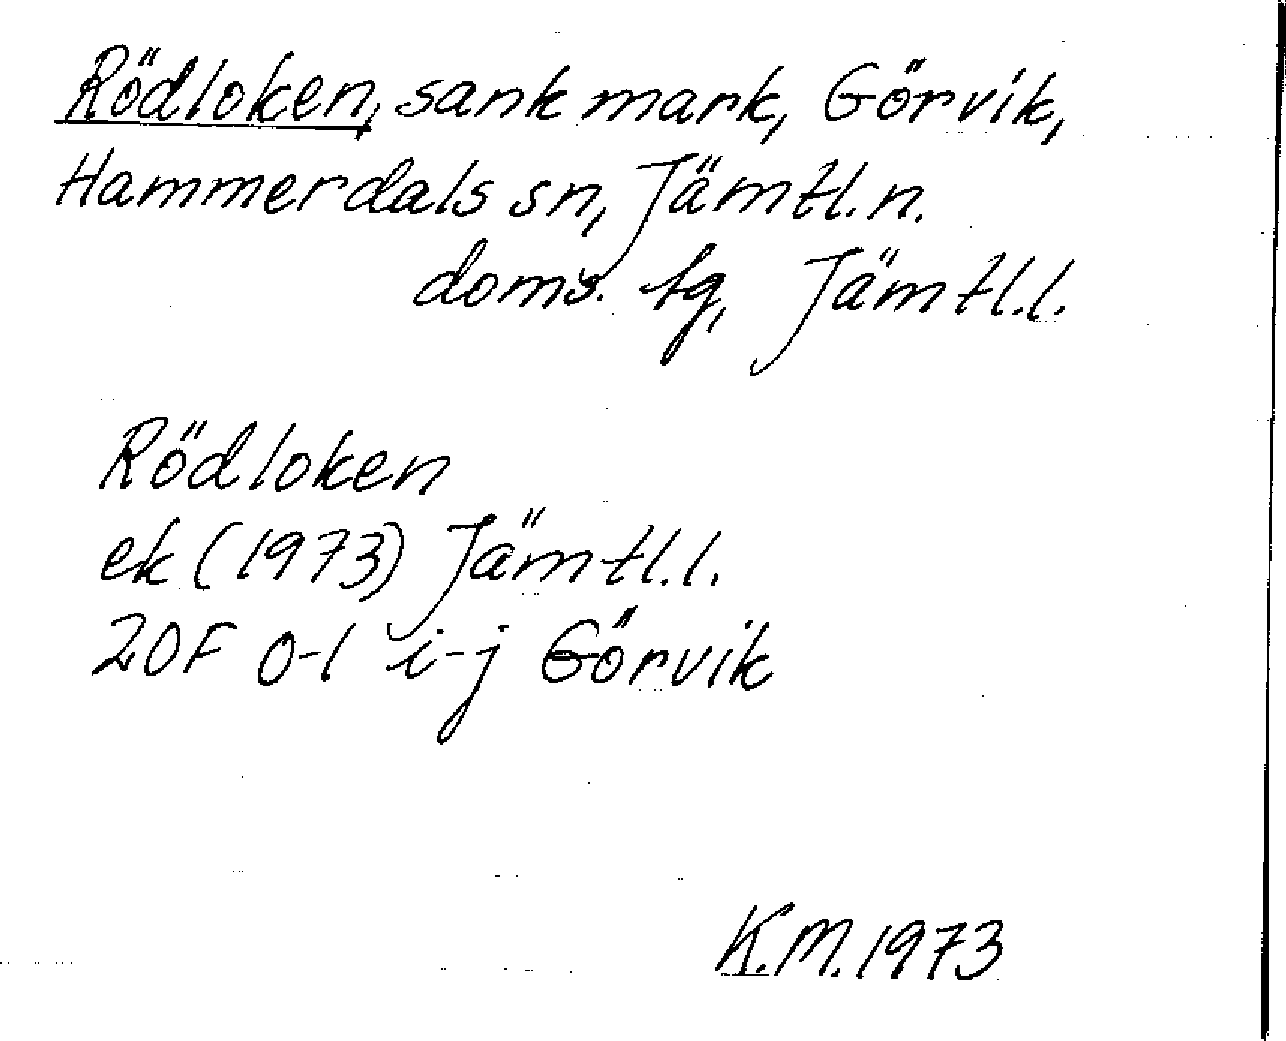 Rödloken, sank mark, Görvik,
Hammerdals sn, Jämtl. n.
doms. tg, Jämtl. l.
Rödloken
ek (1973) Jämtl. l.
20F 0-1 i-j Görvik
K.M. 1973